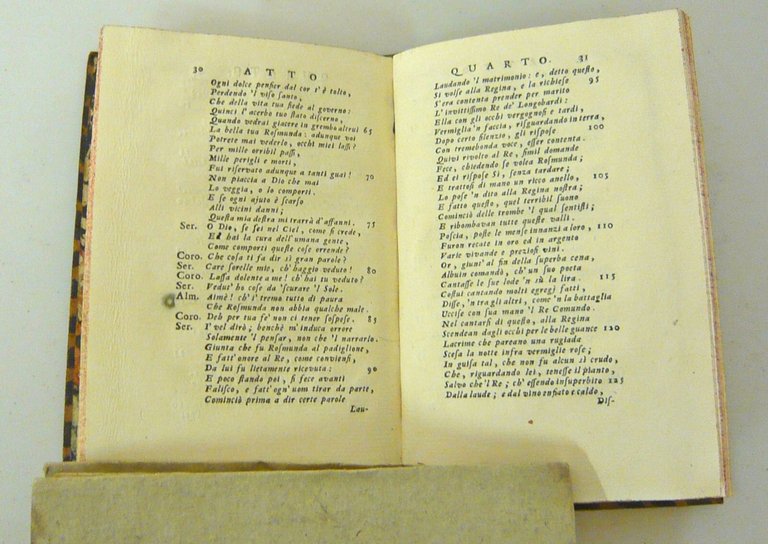 30 ATTO
Ogni dolce penſier dal cor t'è tolto,
Perdendo 'l viſo ſanto,
Che della vita tua ſiede al governo:
Quinci l'acerbo tuo ſtato diſcerno,
Quando vedrai giacere in grembo altrui 65
La bella tua Roſmunda: adunque voi
Potrete mai vederlo, occhi miei laſſi?
Per mille orribil paſſi,
Mille perigli e morti,
Fui riſervato adunque a tanti guai! 70
Non piaccia a Dio che mai
Lo veggia, o lo comporti.
E ſe ogni ajuto è ſcarſo
Alli vicini danni;
Queſta mia deſtra mi trarrà d'affanni. 75
Ser. O Dio, ſe ſei nel Ciel, come ſi crede,
Ed hai la cura dell'umana gente,
Come comporti queſte coſe orrende?
Coro. Che coſa ti fa dir sì gran parole?
Ser. Care ſorelle mie, ch'haggio veduto! 80
Coro. Laſſa dolente a me! ch'hai tu veduto?
Ser. Vedut'ho coſe da 'ſcurare 'l Sole.
Alm. Aimè! ch'i' tremo tutto di paura
Che Roſmunda non abbia qualche male.
Coro. Deh per tua fe' non ci tener ſoſpoſe. 85
Ser. I' vel dirò; benchè m'induca orrore
Solamente 'l penſar, non che 'l narrarlo.
Giunta che fu Roſmunda al padiglione,
E fatt'onore al Re, come convienſi,
Da lui fu lietamente ricevuta: 90
E poco ſtando poi, ſi fece avanti
Faliſco, e fatt'ogn'uom tirar da parte,
Cominciò prima a dir certe parole
Lau-
QUARTO. 31
Laudando 'l matrimonio: e, detto queſto,
Si volſe alla Regina, e la richieſe 95
S'era contenta prender per marito
L'invittiſſimo Re de' Longobardi:
Ella con gli occhi vergognoſi e tardi,
Vermiglia 'n faccia, riſguardando in terra,
Dopo certo ſilenzio, gli riſpoſe 100
Con tremebonda voce, eſſer contenta.
Quivi rivolto al Re, ſimil domando
Fece, chiedendo ſe volea Roſmunda;
Ed ei riſpoſe Sì, ſenza tardare;
E trattoſi di mano un ricco anello, 105
Lo poſe 'n dito alla Regina noſtra;
E fatto queſto, quel terribil ſuono
Cominciò delle trombe 'l qual ſentiſti;
E ribombavan tutte queſte valli.
Poſcia, poſte le menſe innanzi a loro, 110
Furon recate in oro ed in argento
Varie vivande e prezioſi vini.
Or, giunt'al fin della ſuperba cena,
Albuin comandò, ch'un ſuo poeta
Cantaſſe le ſue lode 'n ſù la lira. 115
Coſtui cantando molti egregj fatti,
Diſſe, 'n tra gli altri, come 'n la battaglia
Ucciſe con ſua mano 'l Re Comundo.
Nel cantarſi di queſto, alla Regina
Scendean dagli occhi per le belle guance 120
Lacrime che pareano una rugiada
Sceſa la notte infra vermiglie roſe;
In guiſa tal, che non fu alcun sì crudo,
Che, riguardando lei, teneſſe il pianto,
Salvo che'l Re; ch'eſſendo inſuperbito 125
Dalla laude; e dal vino enfiato e caldo,
Diſ-